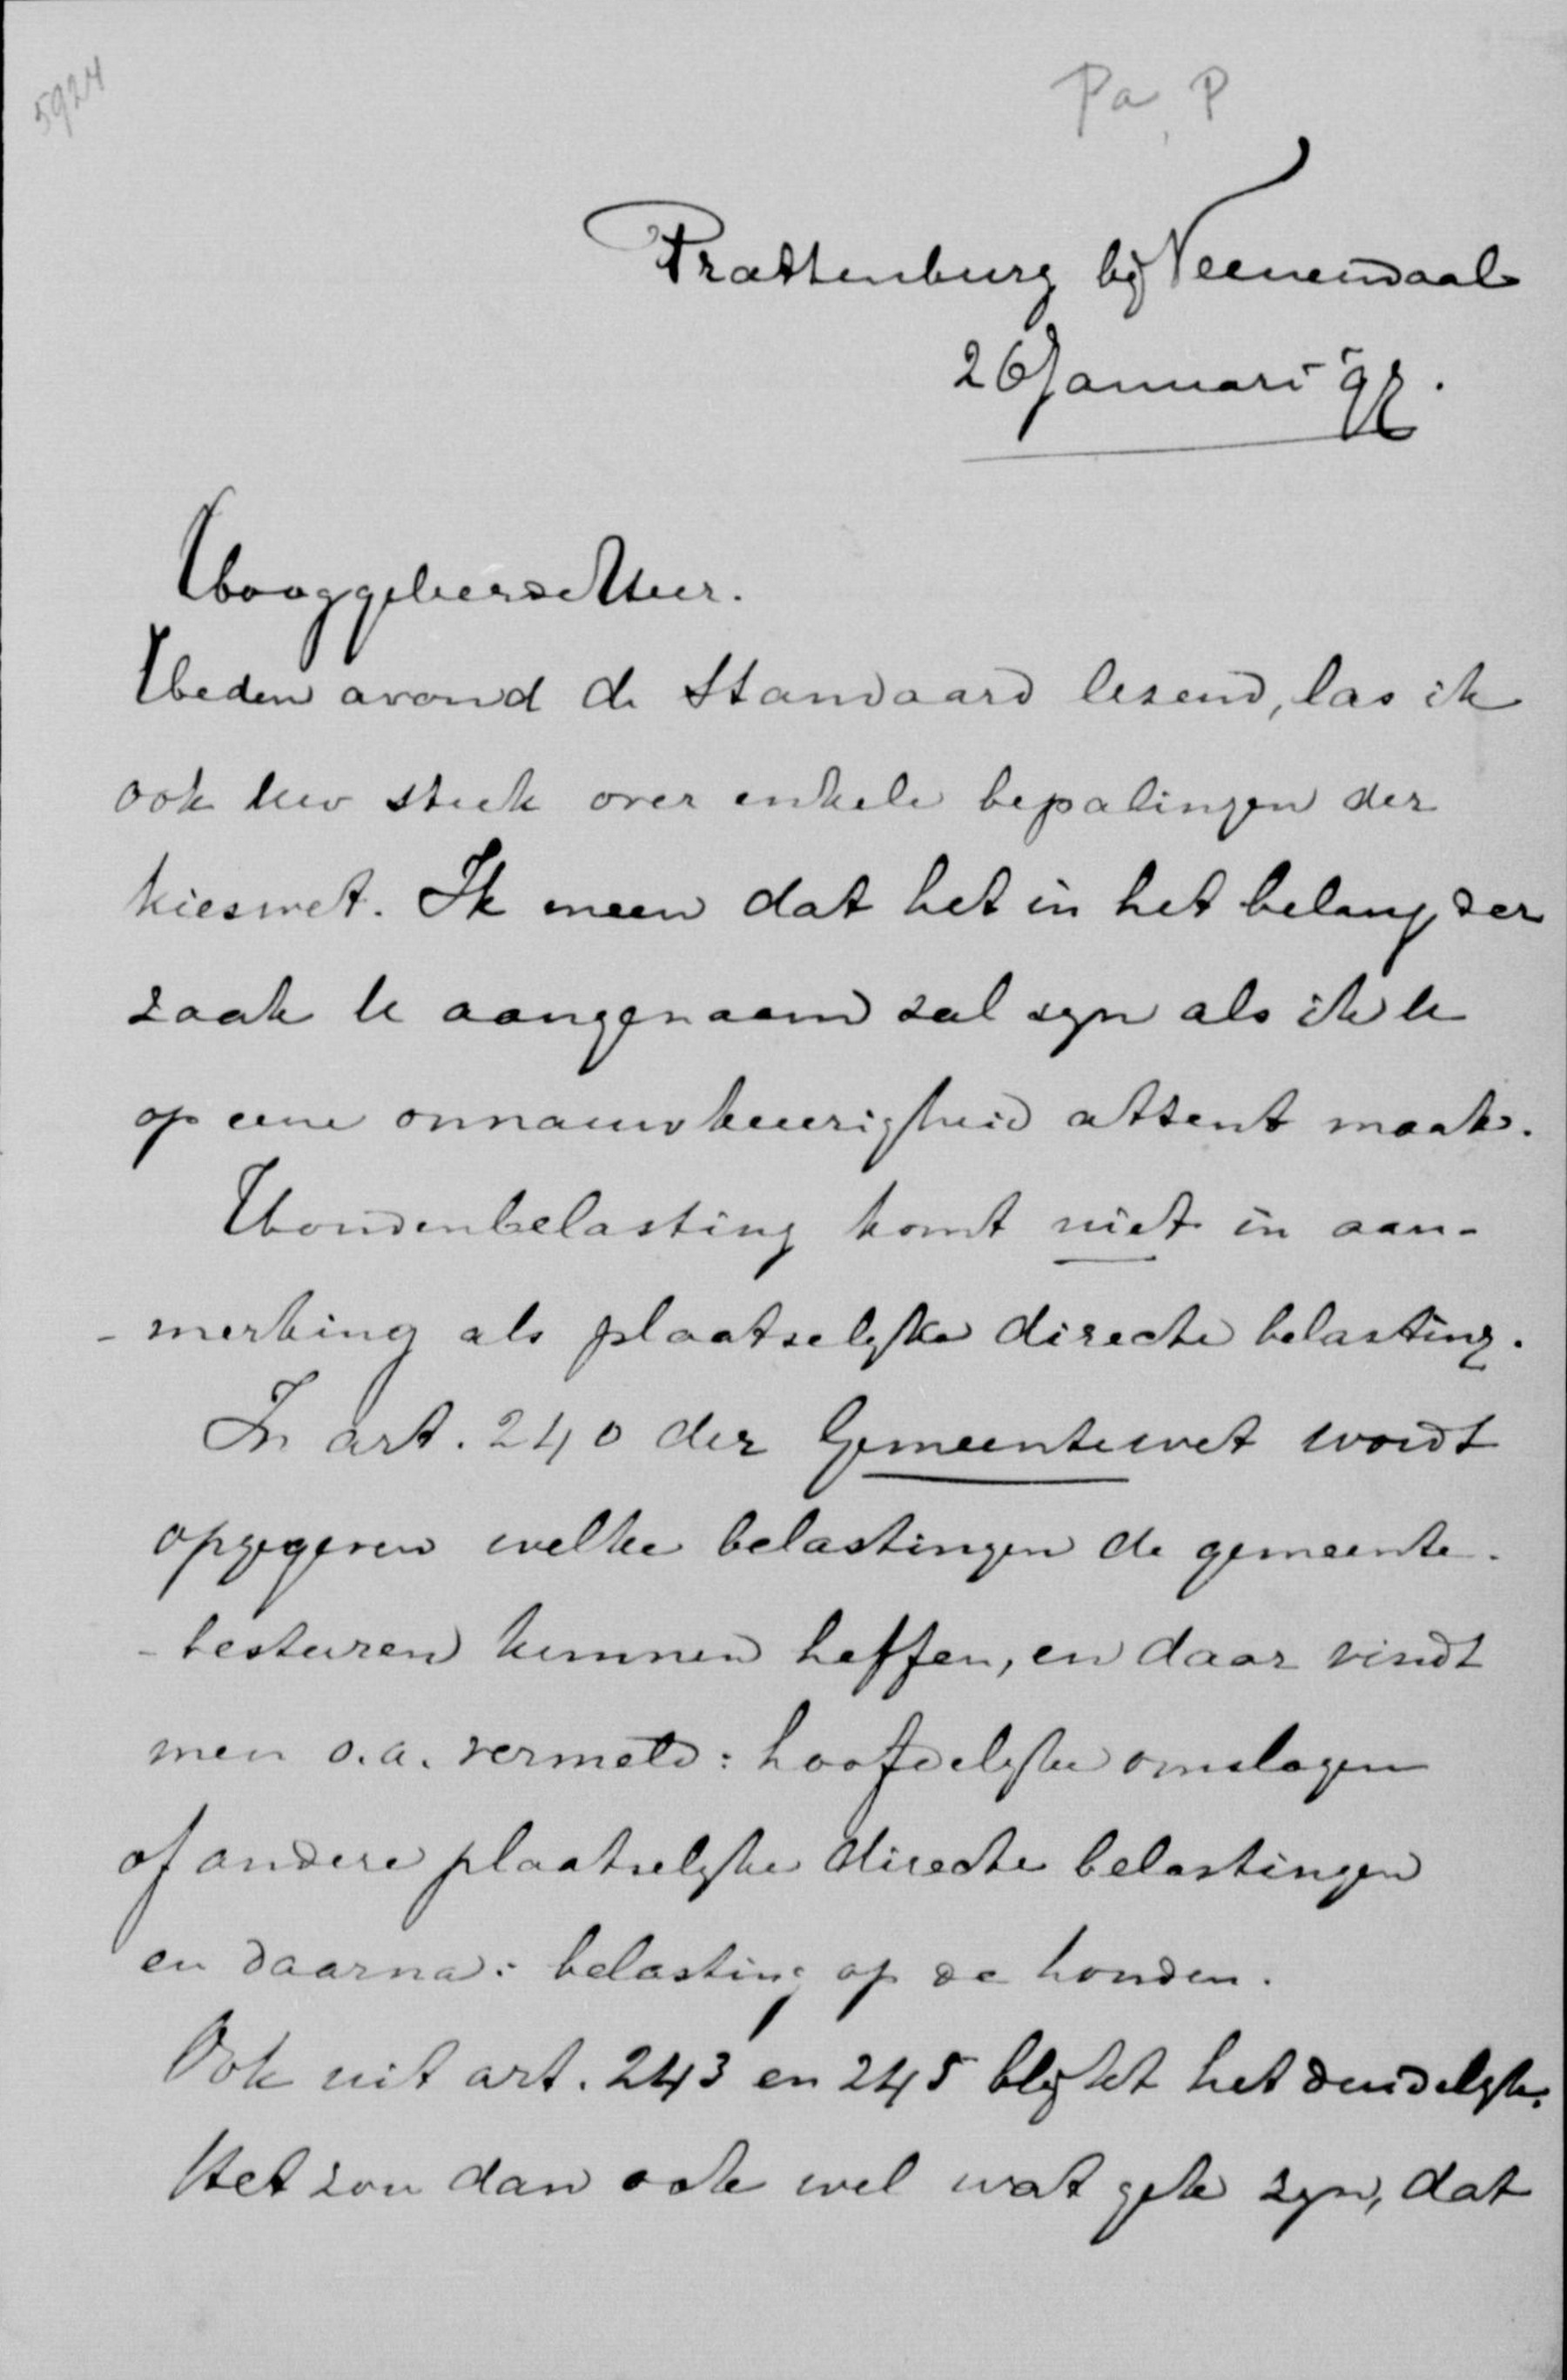 5924
Pa, P
Prattenburg bij Veenendaal
26 Januari 97.
Hooggeleerde Heer.
Heden avond de Standaard lezend, las ik
ook uw stuk over enkele bepalingen der
kieswet. Ik meen dat het in het belang der
zaak U aangenaam zal zijn als ik U
op eene onnauwkeurigheid attent maak.
Hondenbelasting komt niet in aan-
-merking als plaatselijke directe belasting.
In art. 240 der Gemeentewet wordt
opgegeven welke belastingen de gemeente-
-besturen kunnen heffen, en daar vindt
men o.a. vermeld: hoofdelijke omslagen
of andere plaatselijke directe belastingen
en daarna: belasting op de honden.
Ook uit art. 243 en 245 blijkt het duidelijk.
Het zou dan ook wel wat gek zijn, dat